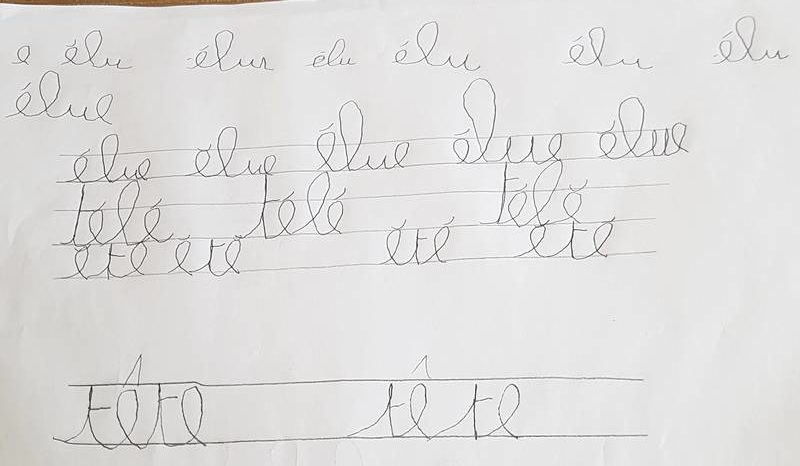 e élu élus élu élu élu élu
élue
élue élue élue élue élue
télé télé télé
été été été été
tête tête